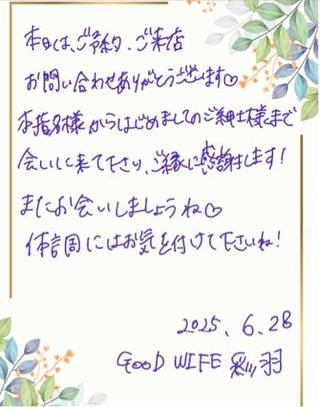 本日は、ご予約、ご来店
お問い合わせありがとうございます♡
本指名様からはじめましてのご紳士様まで
会いに来て下さり、ご縁に感謝します！
またお会いしましょうね♡
体調にはお気を付けて下さいね！
2025. 6. 28
GOOD WIFE 彩羽